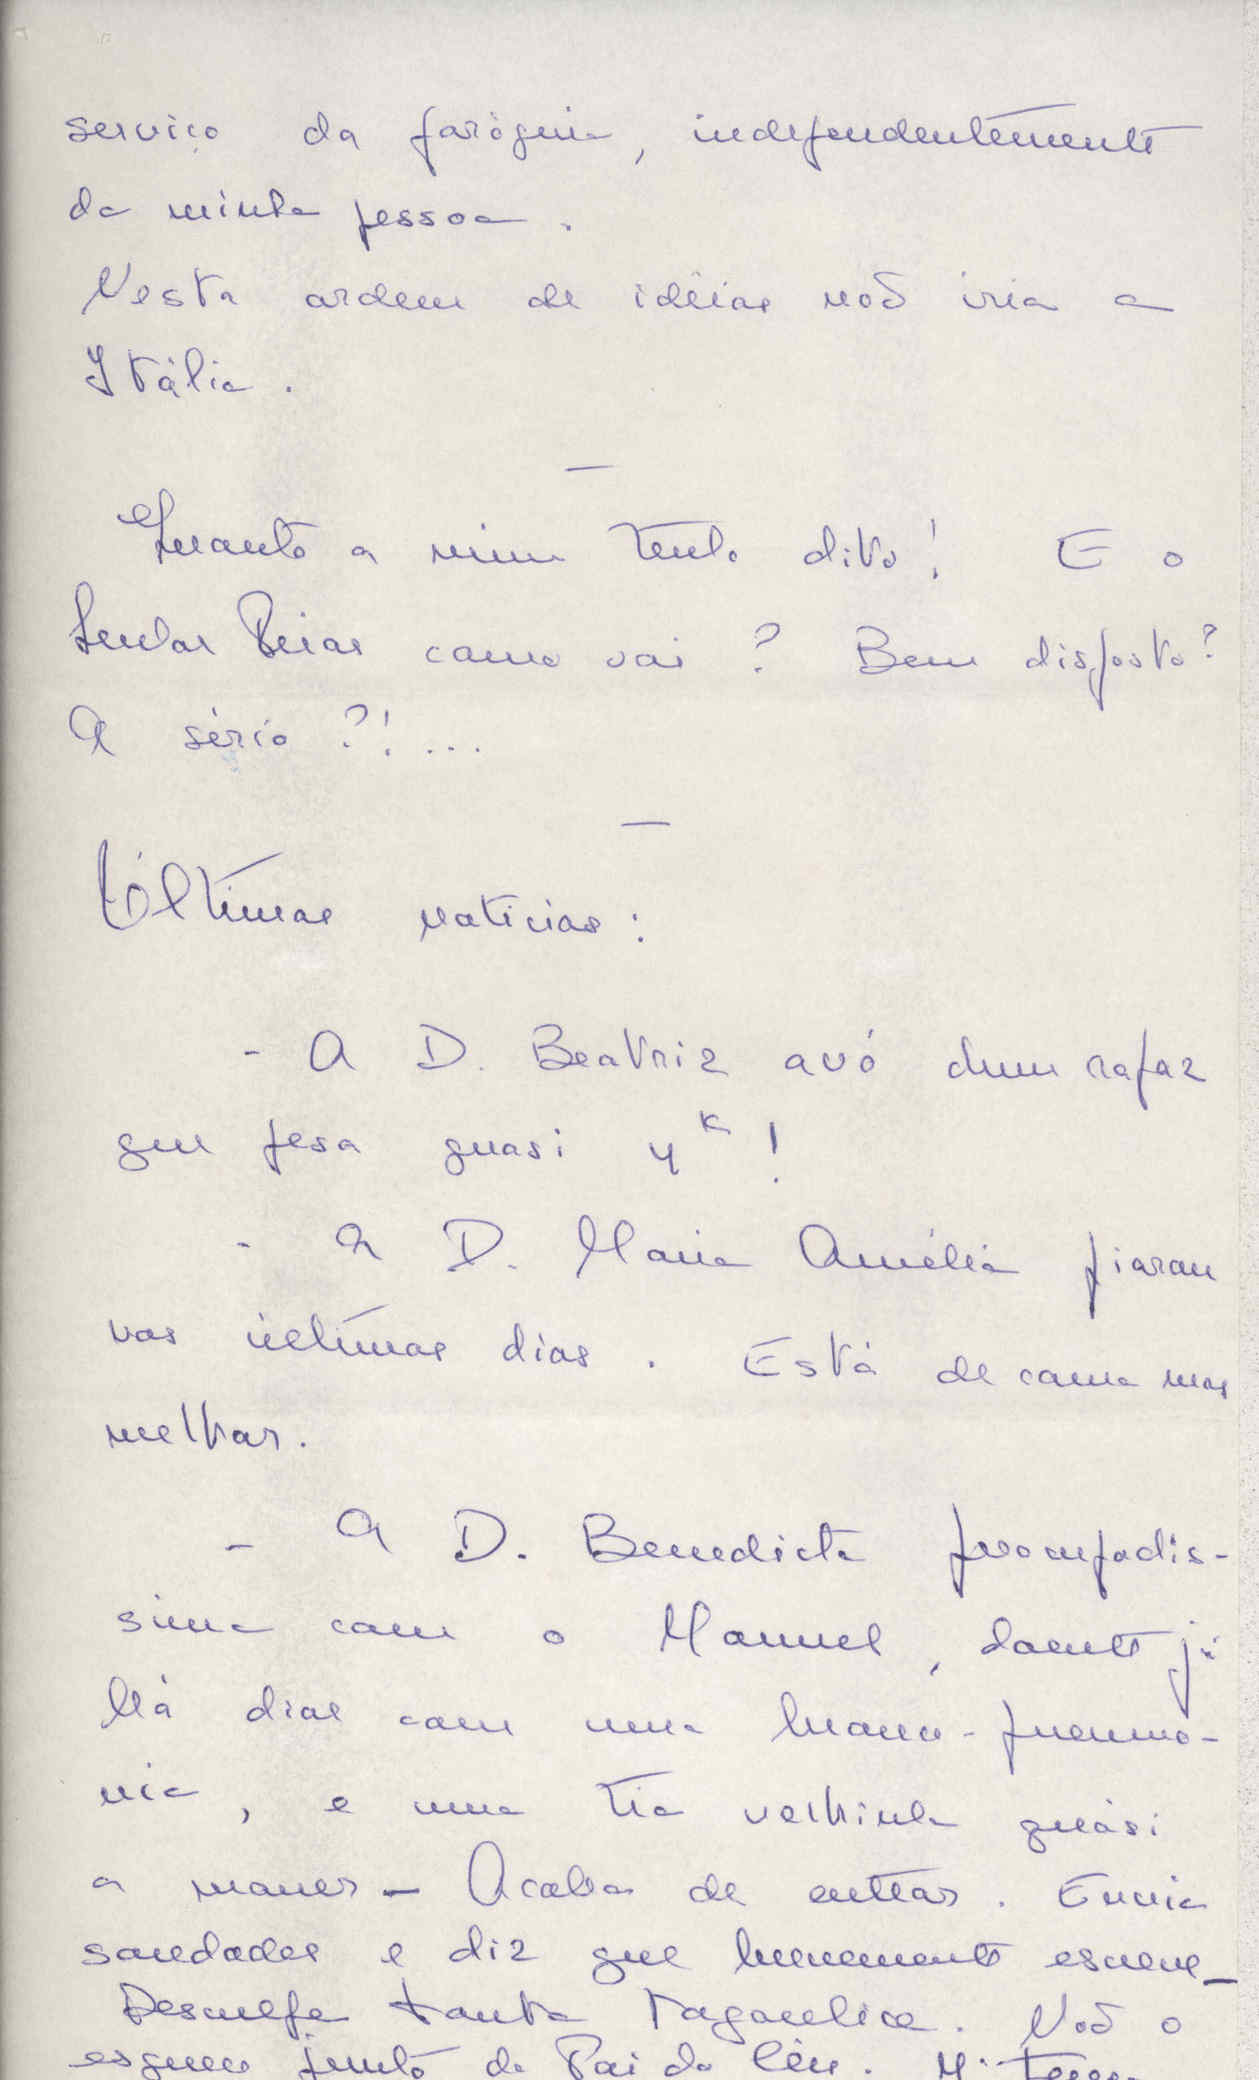 serviço da paróquia, independentemente
da minha pessoa.
Nesta ordem de idéias não iria a
Itália.
—
Quanto a mim tenho dito! E o
Senhor Prior como vai? Bem disposto?
A sério?!...
—
Últimas notícias:
- A D. Beatriz avó dum rapaz
que pesa quasi 4ᴷ!
- A D. Maria Amélia piorou
nos últimos dias. Está de cama mas
melhor.
- A D. Benedicta preocupadís-
sima com o Manuel, doente já
há dias com uma bronco-pneumo-
nia, e uma tia velhinha quási
a morrer - Acaba de entrar. Envia
saudades e diz que brevemente escreve_
Desculpe tanta tagarelice. Não o
esqueço junto do Pai do Céu. Mª Teresa